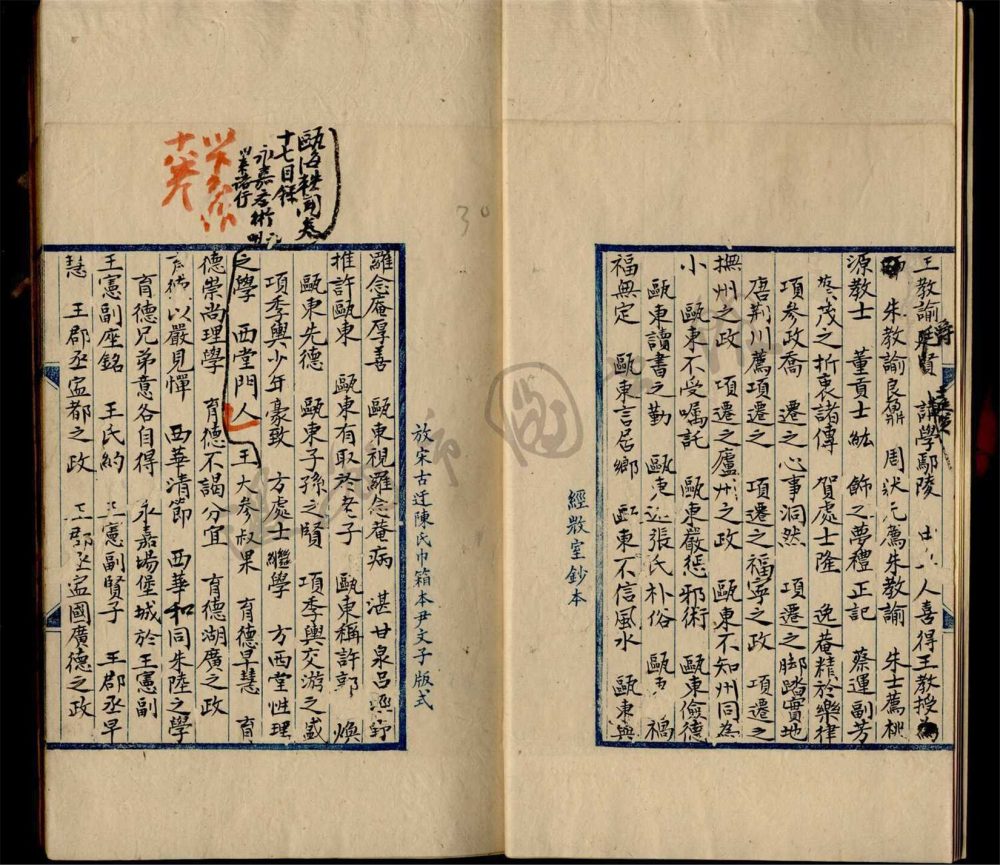 王教諭廷賢 講學鄢陵 人喜得王教授為
師 朱教諭良鼐 周狀元薦朱教諭 朱士薦桃
源教士 董貢士紘 飾之夢禮正記 蔡運副芳
蔡茂之折衷諸傳 賀處士隆 逸菴精於樂律
項參政喬 遷之心事洞然 項遷之脚踏實地
唐荆川薦項遷之 項遷之福寧之政 項遷之
撫州之政 項遷之廬州之政 甌東不知州同為
小 甌東不受囑託 甌東嚴惩邪術 甌東儉德
甌東讀書之勤 甌東 張氏朴俗 甌東 禍
福無定 甌東言居鄉 甌東不信風水 甌東與
經敎室鈔本
放宋古迂陳氏巾箱本尹文子版式
羅念庵厚善 甌東視羅念菴病 湛甘泉呂涇野
推許甌東 甌東有取於老子 甌東稱許郭 煥
甌東先德 甌東子孫之賢 項季輿交游之盛
項季輿少年豪致 方處士繼學 方西堂性理
之學 西堂門人 王大參叔果 育德早慧 育
德崇尚理學 育德不謁分宜 育德湖廣之政
育德以嚴見憚 西華清節 西華和同朱陸之學
育德兄弟意各自得 永嘉場堡城於王憲副
王憲副座銘 王氏約 王憲副賢子 王郡丞早
慧 王郡丞寍都之政 王郡丞寍國廣德之政
甌海軼聞卷
十七目錄
永嘉學術
業諸行
30